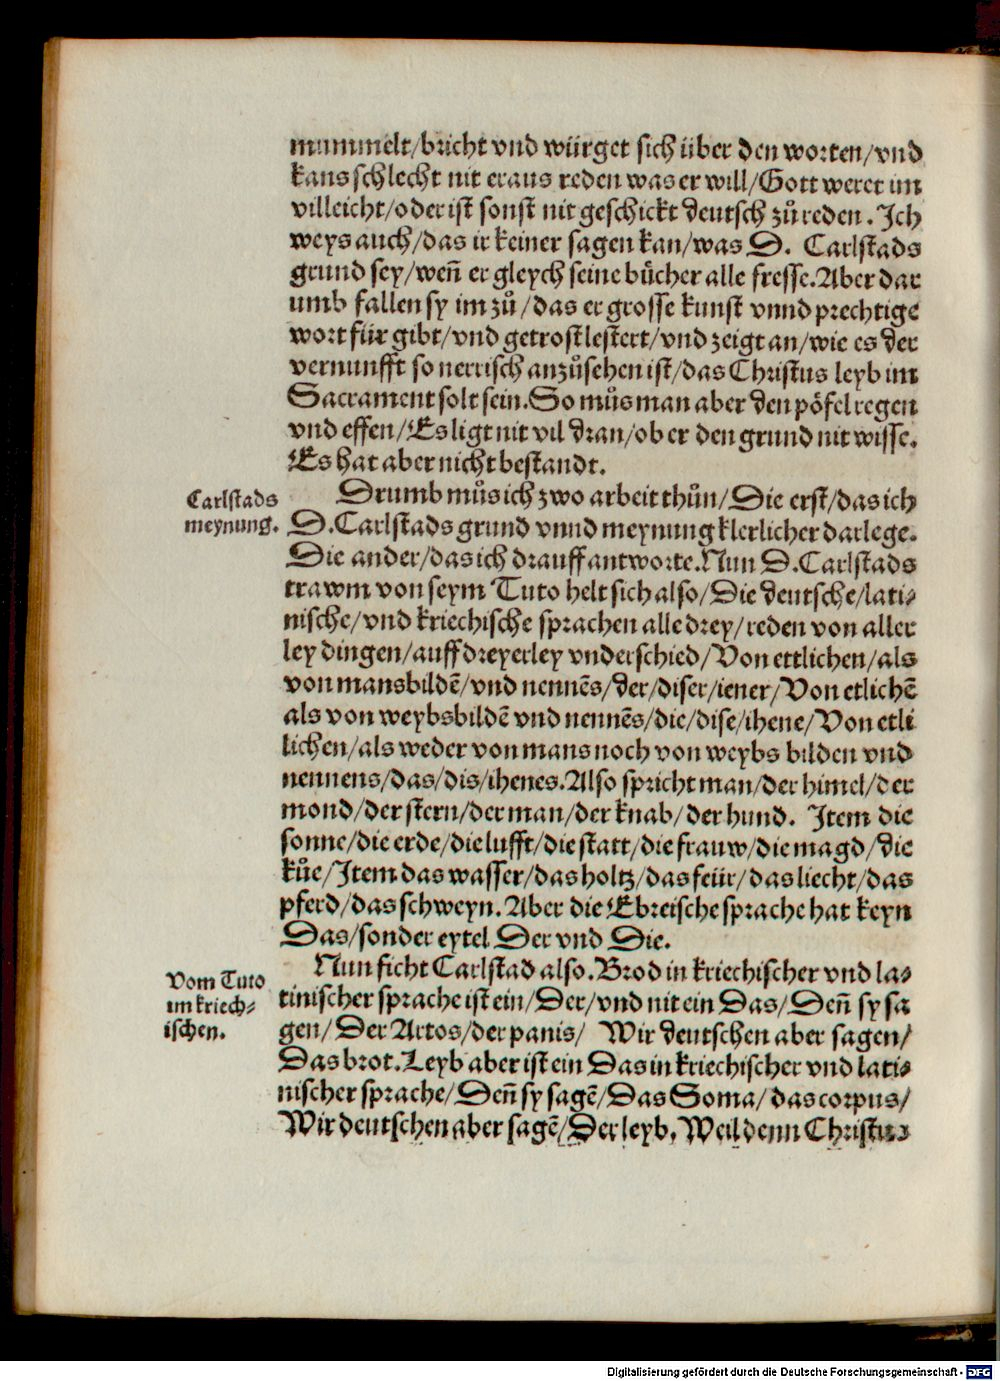 mummelt/bricht vnd würget sich über den worten/vnd
kans schlecht nit eraus reden was er will/Gott weret im
villeicht/oder ist sonst nit geschickt deutsch zů reden. Ich
weys auch/das ir keiner sagen kan/was D. Carlstads
grund sey/weñ er gleych seine bücher alle fresse. Aber dar
umb fallen sy im zů/das er grosse kunst vnnd prechtige
wort für gibt/vnd getrost lestert/vnd zeigt an/wie es der
vernunfft so nerrisch anzůsehen ist/das Christus leyb im
Sacrament solt sein. So můs man aber den pöfel regen
vnd effen/Es ligt nit vil dran/ob er den grund nit wisse.
Es hat aber nicht bestandt.
Carlstads
meynung.
Drumb můs ich zwo arbeit thůn/Die erst/das ich
D. Carlstads grund vnnd meynung klerlicher darlege.
Die ander/das ich drauff antworte. Nun D. Carlstads
trawm von seym Tuto helt sich also/Die deutsche/lati-
nische/vnd kriechische sprachen alle drey/reden von aller
ley dingen/auff dreyerley vnderschied/Von ettlichen/als
von mansbildē/vnd nennēs/der/diser/iener/Von etlichē
als von weybsbildē vnd nennēs/die/dise/ihene/Von etli
lichen/als weder von mans noch von weybs bilden vnd
nennens/das/dis/ihenes. Also spricht man/der himel/der
mond/der stern/der man/der knab/der hund. Item die
sonne/die erde/die lufft/die statt/die frauw/die magd/die
kůe/Item das wasser/das holtz/das feür/das liecht/das
pferd/das schweyn. Aber die Ebreische sprache hat keyn
Das/sonder eytel Der vnd Die.
Vom Tuto
im kriech-
ischen.
Nun ficht Carlstad also. Brod in kriechischer vnd la-
tinischer sprache ist ein/Der/vnd nit ein Das/Deñ sy sa
gen/Der Artos/der panis/ Wir deutschen aber sagen/
Das brot. Leyb aber ist ein Das in kriechischer vnd lati-
nischer sprache/Deñ sy sagē/Das Soma/das corpus/
Wir deutschen aber sagē/Der leyb, Weil denn Christus
Digitalisierung gefördert durch die Deutsche Forschungsgemeinschaft - DFG